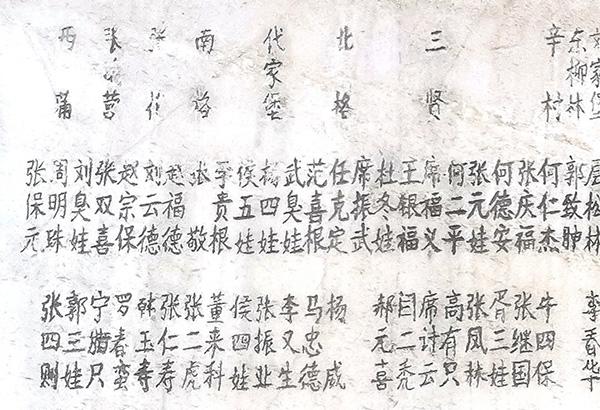 家堡
东柳林
辛村
三贤
北格
代家堡
南
张营
西蒲
松林
郭致
何仁杰
张庆福
何德安
张元娃
何二平
席福义
王银福
杜冬娃
席振武
任克定
范喜根
武臭娃
杨四娃
侯五娃
贵根
张敬
赵福德
刘云德
赵宗保
张双喜
刘臭娃
周明珠
张保元
李春华
牛四保
张继国
胥三娃
张凤林
高有只
席讨云
闫二秃
郝元喜
杨威
马忠德
李又生
张振业
侯四娃
董来科
张二虎
张仁寿
韩玉寿
罗春蛮
宁腊只
郭三娃
张四则